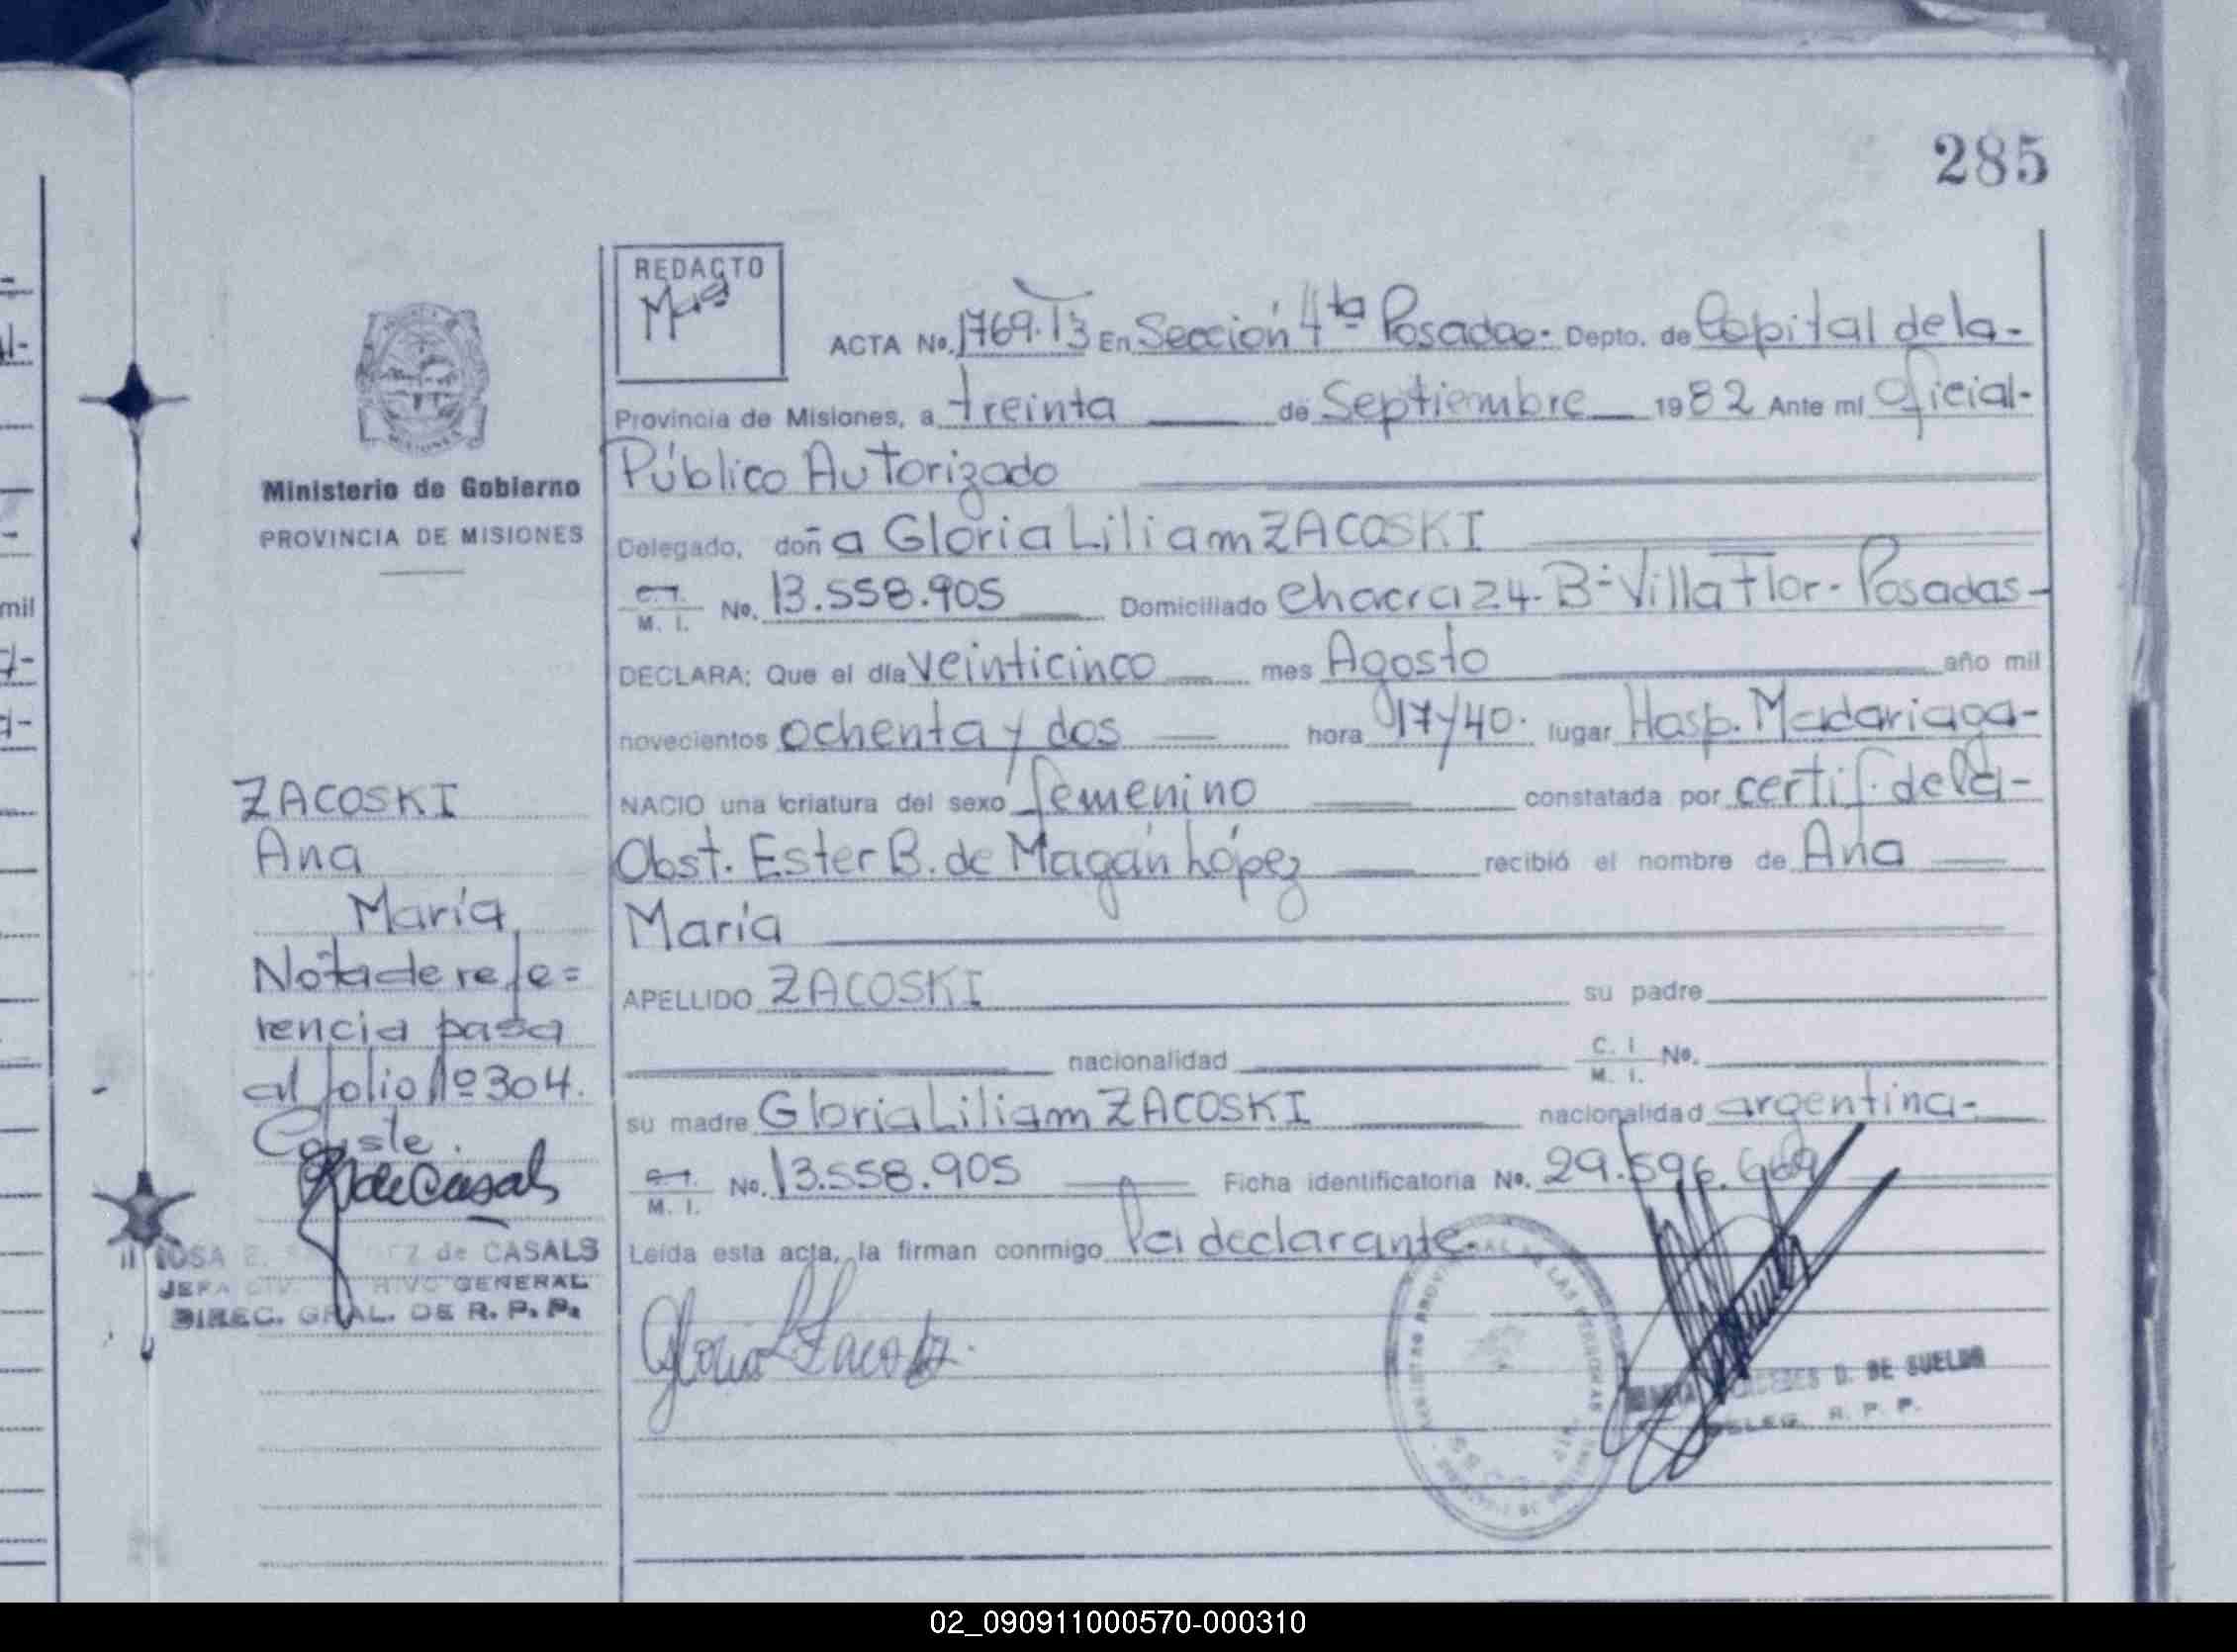 285
REDACTO
ACTA No. 1769.T3 En Sección 4ta Posadas- Depto. de Capital de la-
Provincia de Misiones, a treinta de Septiembre 1982 Ante mí Oficial-
Público Autorizado
Ministerio de Gobierno
PROVINCIA DE MISIONES
Delegado, doña Gloria Liliam ZACOSKI
C.I. M. I. No. 13.558.905 Domiciliado Chacra 24-Bº Villa Flor- Posadas-
DECLARA: Que el día veinticinco mes Agosto año mil
novecientos ochenta y dos hora 17/40. lugar Hosp. Madariaga-
NACIO una criatura del sexo femenino constatada por certif. de la-
Obst. Ester B. de Magán López recibió el nombre de Ana
María
APELLIDO ZACOSKI su padre
nacionalidad C. I. M. I. No.
su madre Gloria Liliam ZACOSKI nacionalidad argentina-
C.I. M. I. No. 13.558.905 Ficha identificatoria No. 29.596.669
Leída esta acta, la firman conmigo la declarante.
ZACOSKI
Ana
María
Nota de refe=
rencia pasa
al folio Nº 304.
Conste.
R de Casals
ROSA E. de CASALS
JEFA DIV. GENERAL
DIREC. GRAL. DE R. P. P.
Gloria L Zacoski.
D. DE SUELDO
DELEG. R. P. P.
mil
02_090911000570-000310